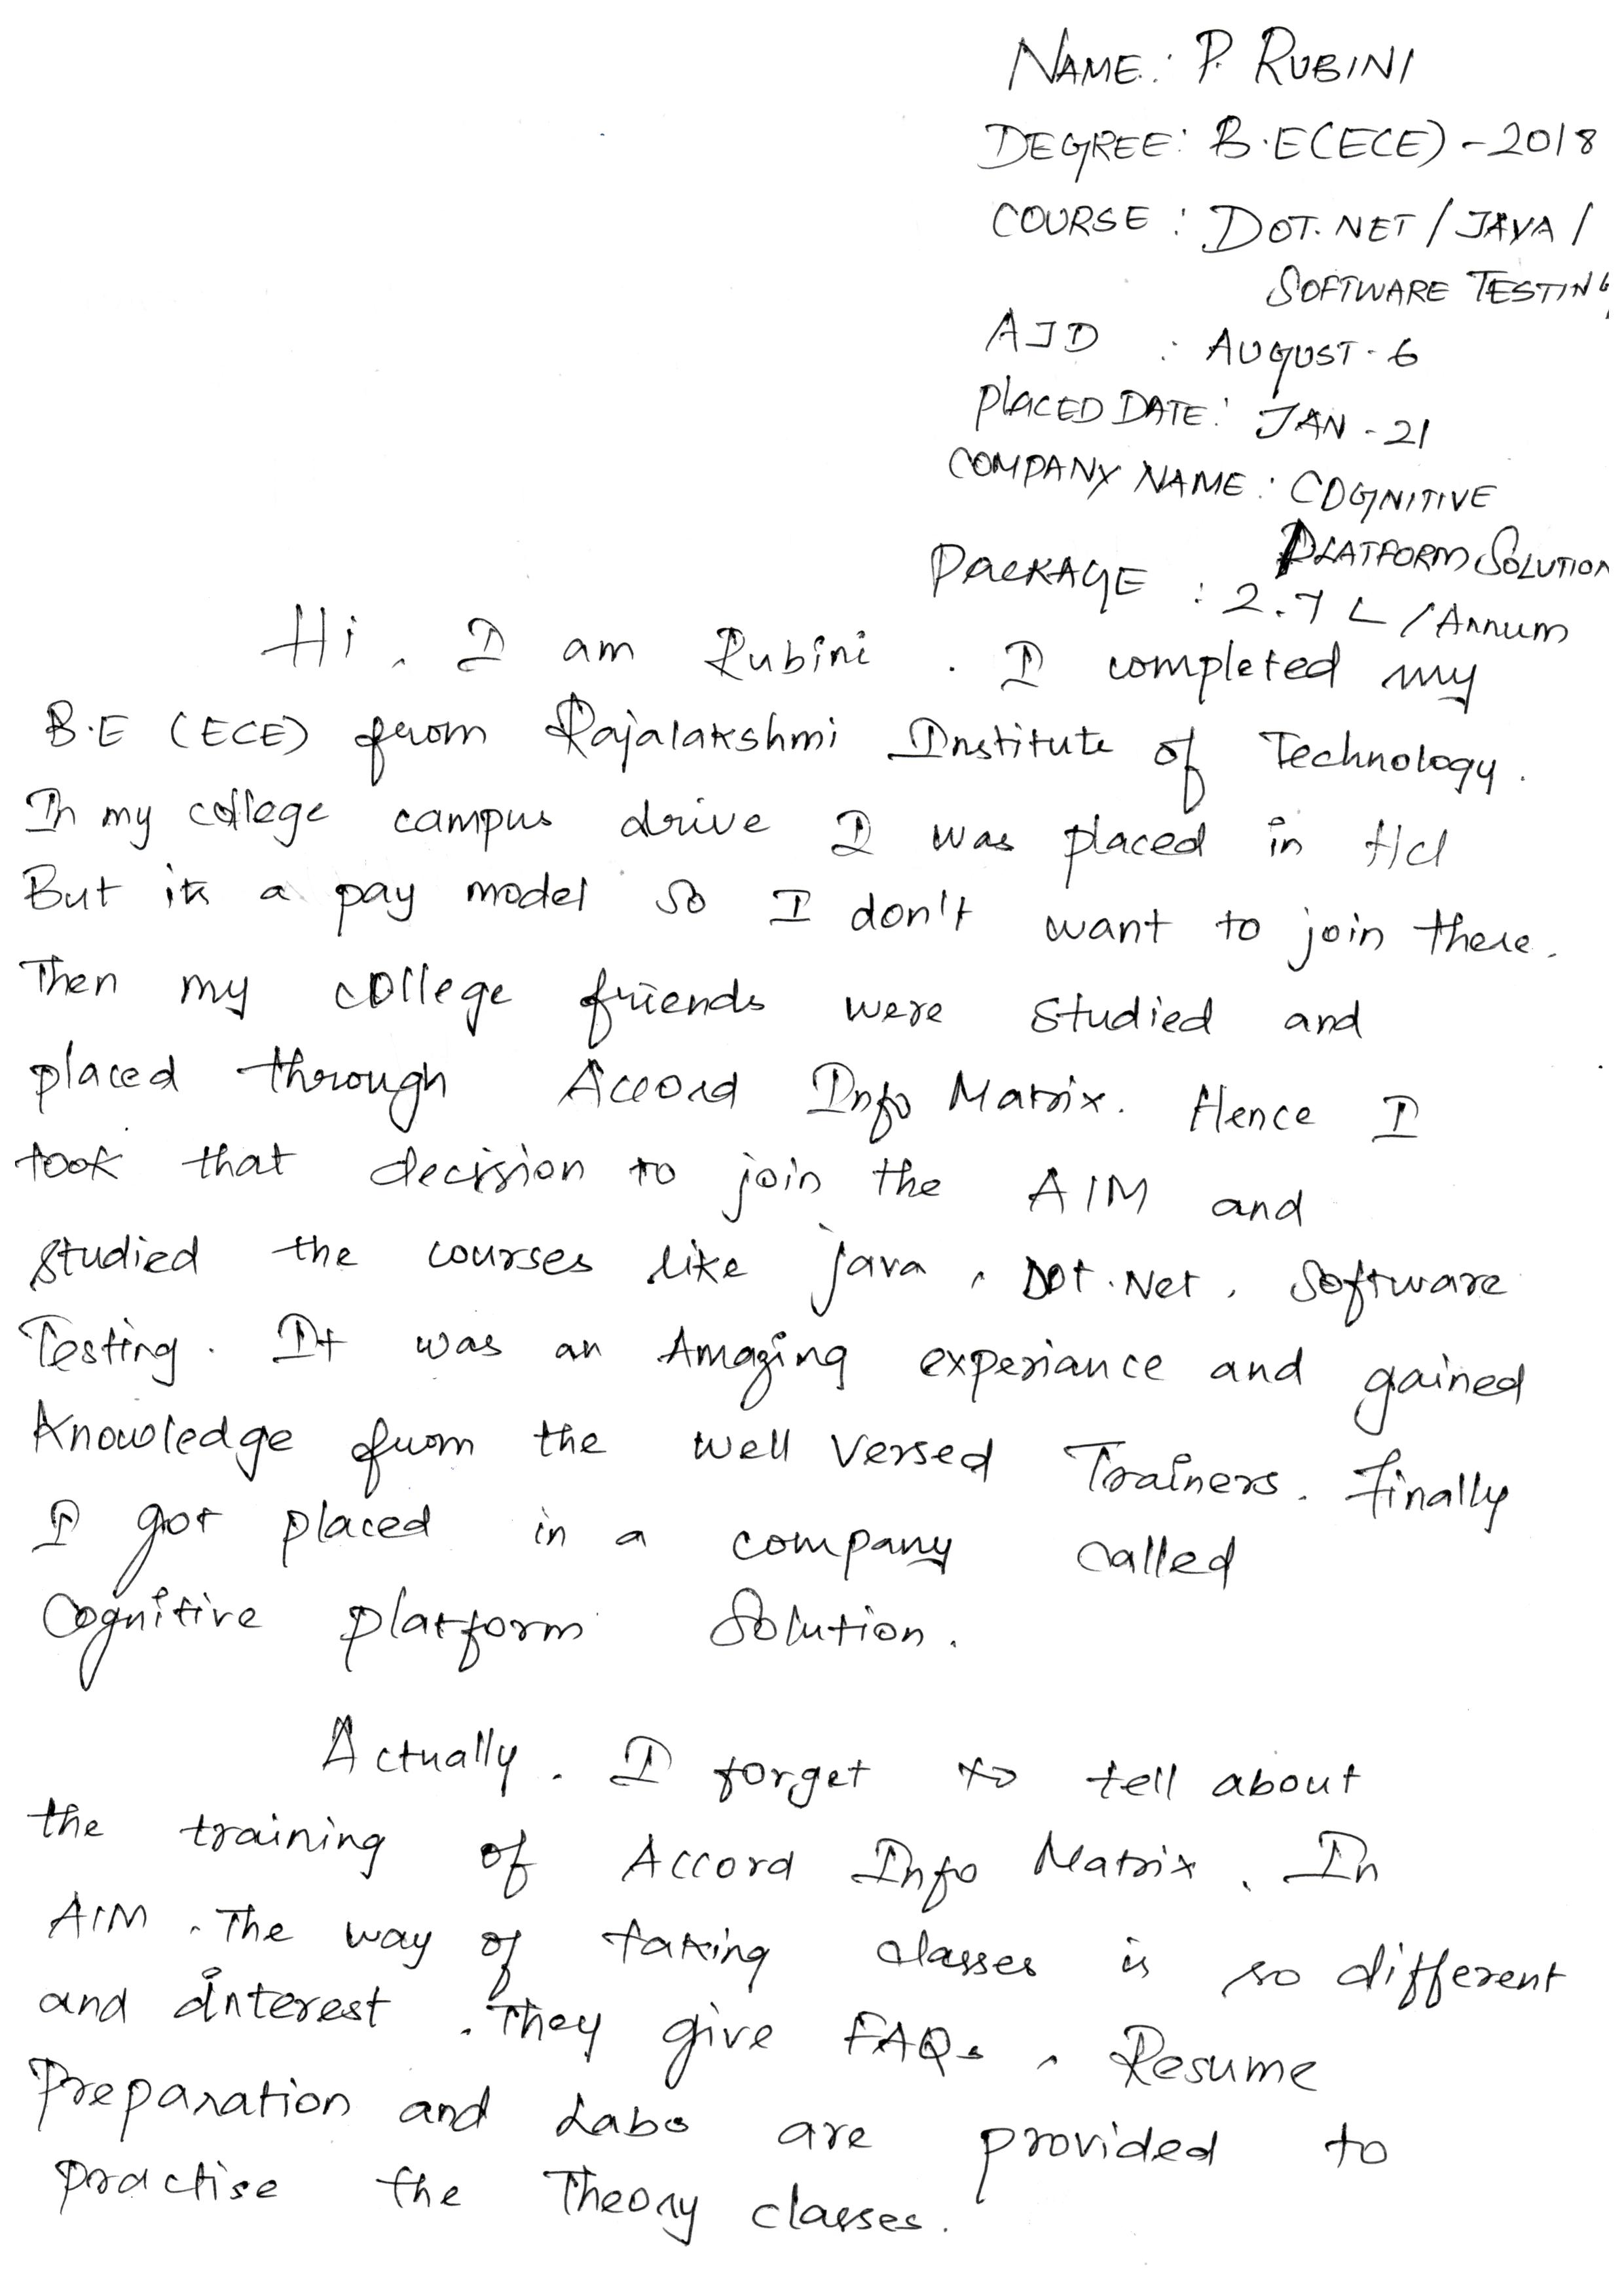 NAME: P. RUBINI
DEGREE: B.E(ECE) - 2018
COURSE : DOT.NET / JAVA /
SOFTWARE TESTING
AJD : AUGUST - 6
PlACED DATE: JAN - 21
COMPANY NAME: COGNITIVE
PLATFORM SOLUTION
PACKAGE : 2.7 L / Annum
Hi, I am Rubini. I completed my
B.E (ECE) from Rajalakshmi Institute of Technology.
In my college campus drive I was placed in Hcl
But its a pay model so I don't want to join there.
Then my college friends were studied and
placed through Accord Info Matrix. Hence I
took that decision to join the AIM and
studied the courses like java, Dot.Net, Software
Testing. It was an Amazing experiance and gained
Knowledge from the well versed Trainers. Finally
I got placed in a company called
Cognitive platform Solution.
Actually, I forget to tell about
the training of Accord Info Matrix. In
AIM, The way of taking classes is so different
and interest. They give FAQs, Resume
Preparation and Labs are provided to
practise the Theory classes.